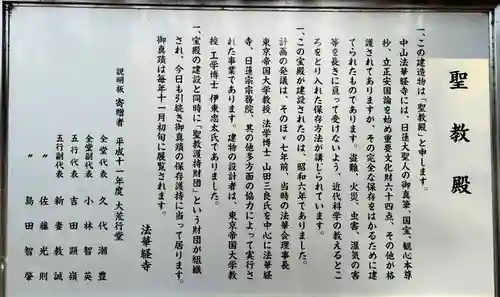 聖教殿
一、この建造物は「聖教殿」と申します。
中山法華経寺には、日蓮大聖人の御真筆、国宝、観心本尊
抄、立正安国論を始め重要文化財六十四点、その他が格
護されてありますが、その完全な保存をはかるために建
てられたものであります。盗難、火災、虫害、湿気の害
等を長きに亘って受けないよう、近代科学の教えるとこ
ろをとり入れた保存方法が講じられています。
一、この宝殿が建設されたのは、昭和六年であります。
計画の発議は、そのほゞ七年前、当時の法華会理事長
東京帝国大学教授 法学博士 山田三良氏を中心に法華経
寺、日蓮宗宗務院、其の他多方面の協力によって実行さ
れた事業であります。建物の設計者は、東京帝国大学教
授 工学博士 伊東忠太氏であります。
一、宝殿の建設と同時に「聖教護持財団」という財団が組織
され、今日も引続き御真蹟の保存護持に当って居ります。
御真蹟は毎年十一月初旬に展覧されます。
法華経寺
説明板 寄贈者 平成十一年度 大荒行堂
全堂代表 久代潮豊
全堂副代表 小林智英
五行代表 吉田顕嶺
五行副代表 新妻教誠
〃 佐藤光則
〃 島田智肇